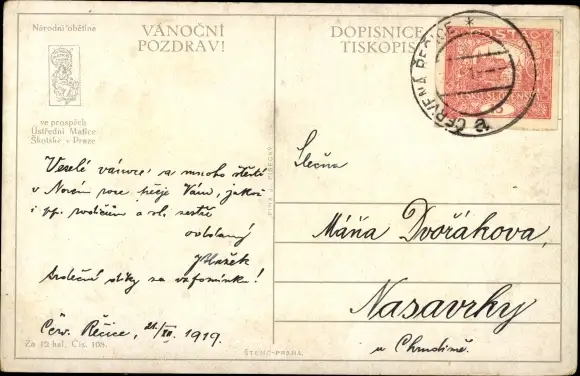 Národní obětine
ve prospěch
Ústřední Matice
Školské v Praze
VÁNOČNÍ
POZDRAV!
DOPISNICE
TISKOPIS
ČERVENÁ ŘEČICE
Veselé vánoce a mnoho štěstí
v Novém roce přeje Vám, jakož
i pp. rodičům a sl. sestře
oddaný
JBlažek
Srdečné díky za vzpomínku!
Čer. Řečice, 21/XII. 1919.
Za 12 hal. Čís. 108.
ŠTENC-PRAHA.
Slečna
Máňa Dvořákova,
Nasavrky
u Chrudimě.